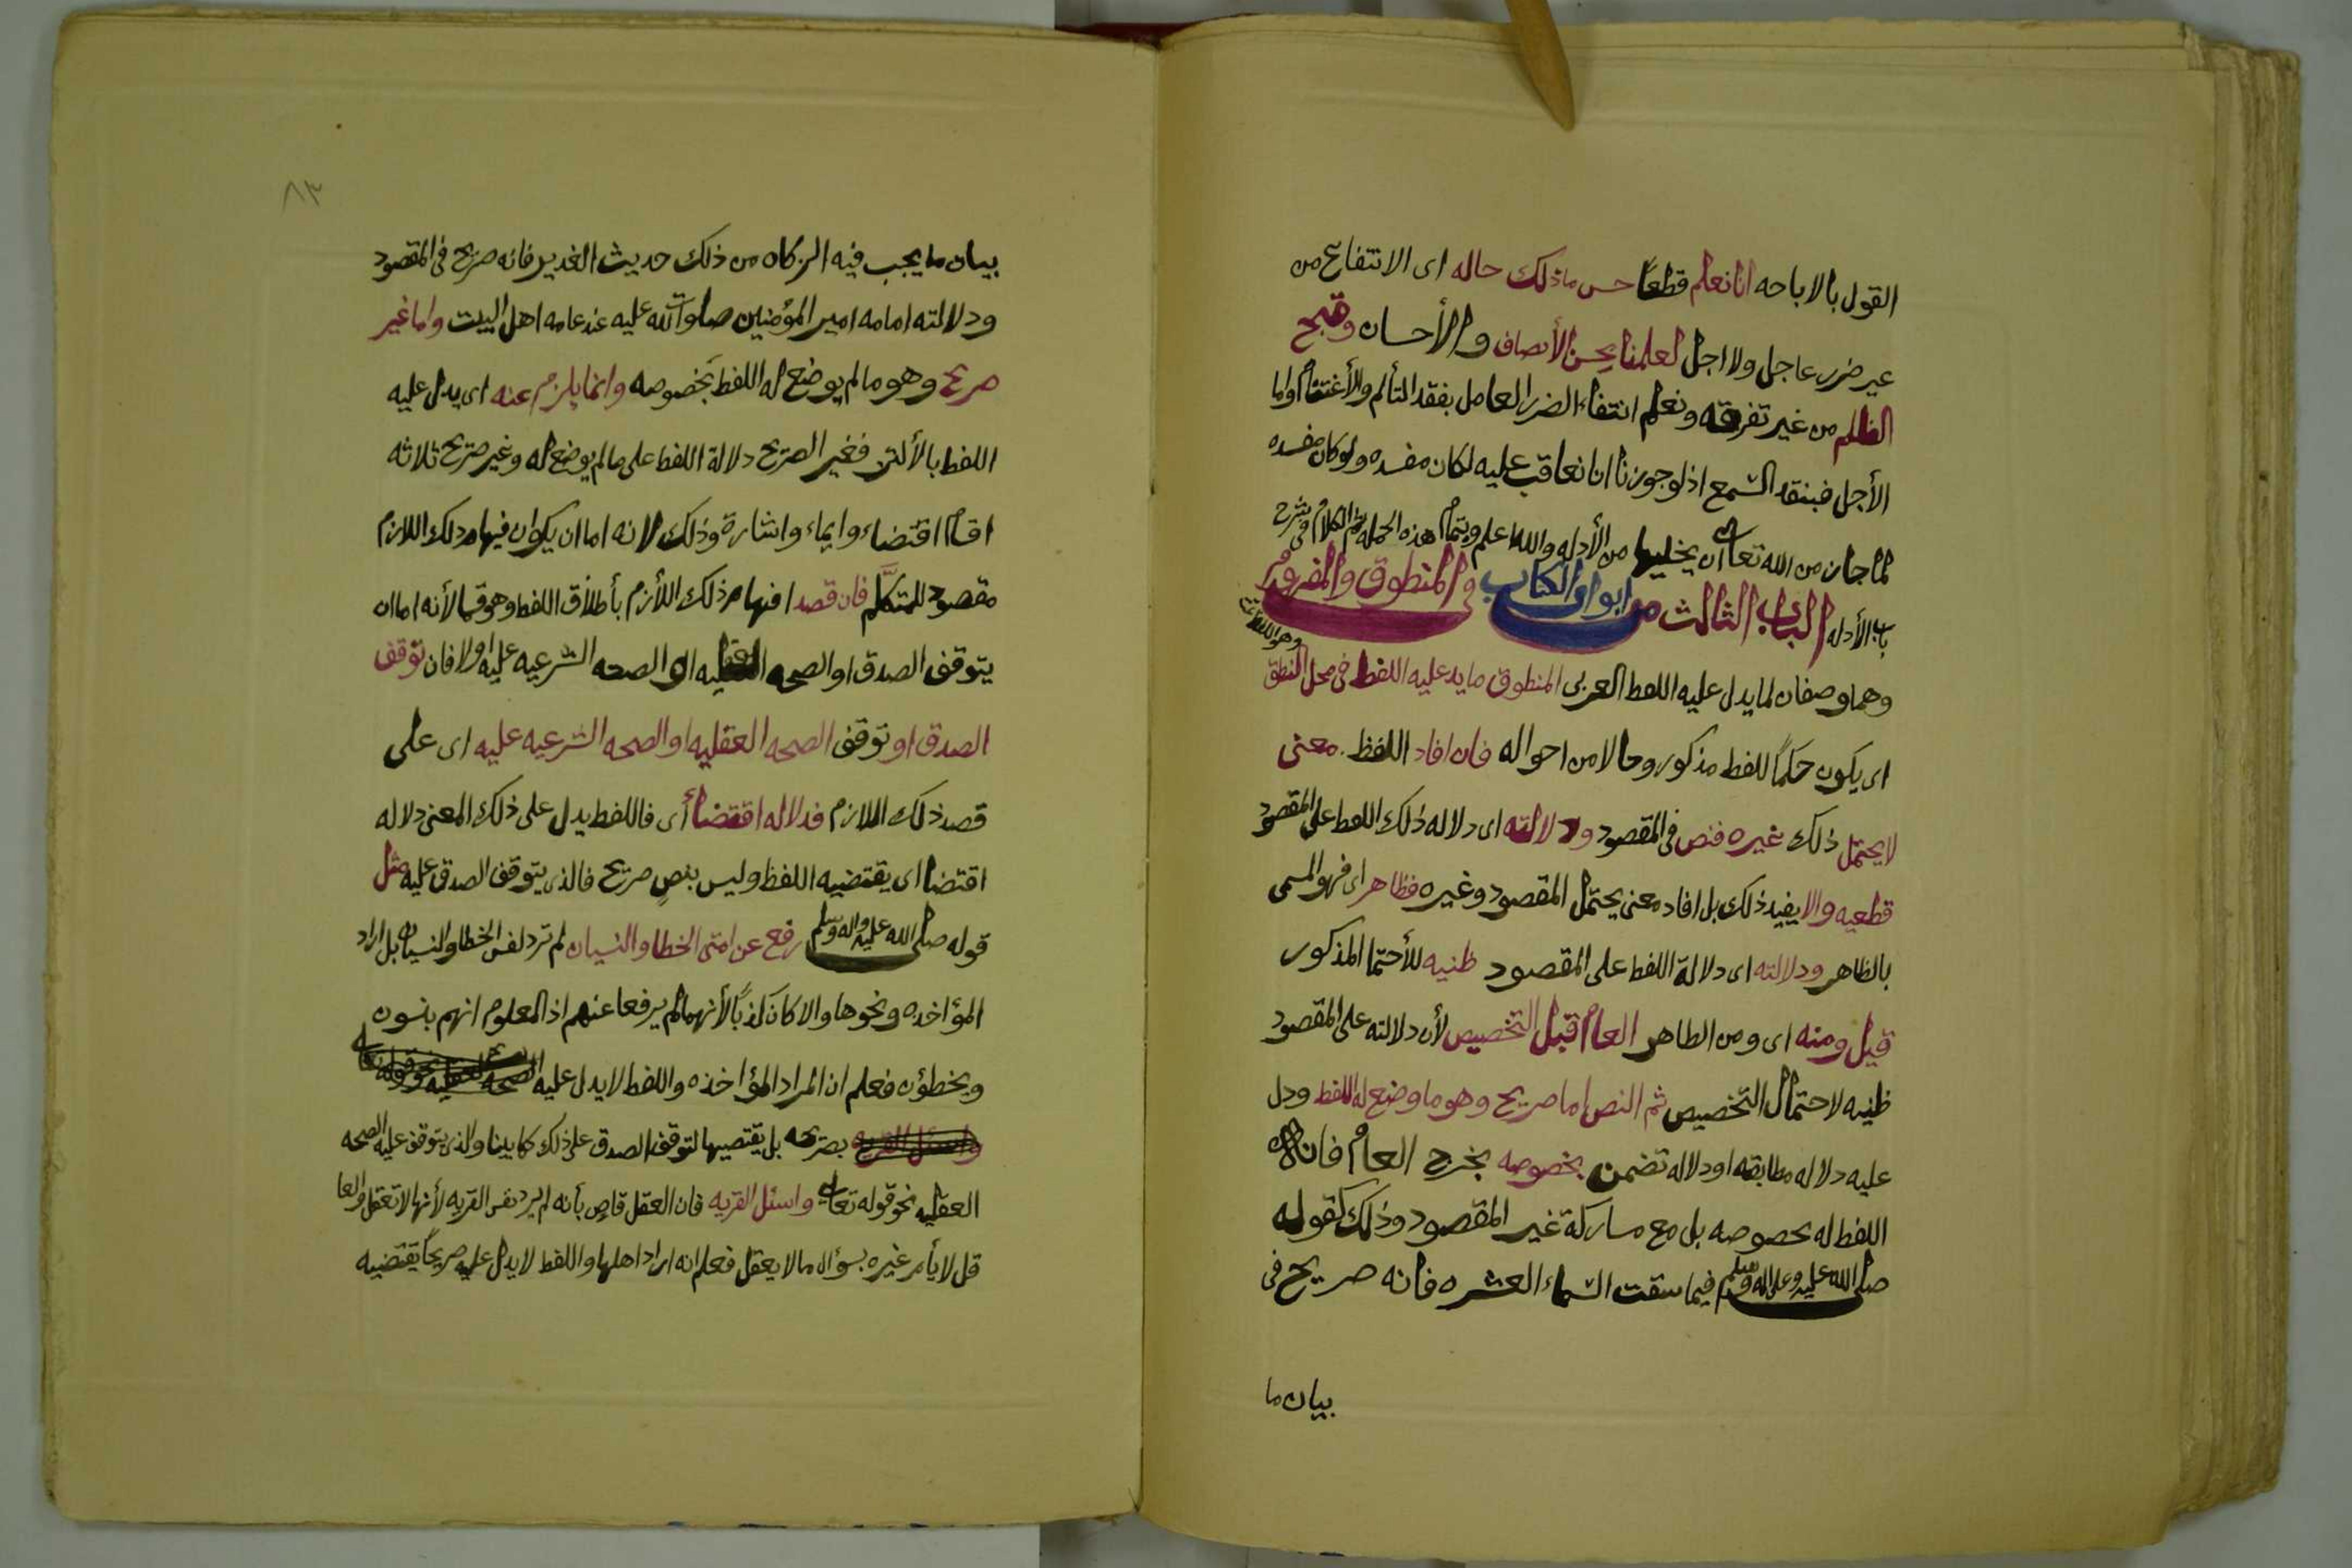 القول بالاباحه انا نعلم قطعاً حسن ماذلك حاله اى الانتفاع من
غير ضرر عاجل ولا اجل لعلمنا بحسن الأنصاف والأحسان وقبح
الظلم من غير تفرقه ونعلم انتفاء الضرر العاجل بفقد التألم والأغتمام واما
الأجل فبفقد السمع اذ لو جوزنا انا نعاقب عليه لكان مفسده ولو كان مفسده
لما جاز من الله تعالى ان يخليها من الأدله والله اعلم وبتمام هذه الجمله تم الكلام فى شرح
باب الأدله الباب الثالث من ابواب الكتاب فى المنطوق والمفهوم
وهما وصفان لما يدل عليه اللفظ العربى المنطوق ما يدل عليه اللفظ فى محل النطق
اى يكون حكماً للفظ مذكور وحالا من احواله فان افاد اللفظ معنى
لا يحتمل ذلك غيره فنص فى المقصود ودلالته اى دلاله ذلك اللفظ على المقصود
قطعيه والا يفيد ذلك بل افاد معنى يحتمل المقصود وغيره فظاهر اى فهو المسمى
بالظاهر ودلالته اى دلالة اللفظ على المقصود ظنيه للأحتما المذكور
قيل ومنه اى ومن الظاهر العام قبل التخصيص لأن دلالته على المقصود
ظنيه لاحتمال التخصيص ثم النص اما صريح وهو ما وضع له اللفظ ودل
عليه دلاله مطابقه او دلاله تضمن بخصوصه يخرج العام فان
اللفظ له بخصوصه بل مع مساركة غير المقصود وذلك كقوله
صلى الله عليه وعلى اله وسلم فيما سقت السماء العشر فانه صريح فى
بيان ما
٨٣
بيان ما يجب فيه الزكاه من ذلك حديث الغدير فانه صريح فى المقصود
ودلالته امامه امير المؤمنين صلوات الله عليه عند عامه اهل البيت واما غير
صريح وهو ما لم يوضع له اللفظ بخصوصه وانما يلزم عنه اى يدل عليه
اللفظ بالألتزام فغير الصريح دلالة اللفظ على ما لم يوضع له وغير صريح ثلاثه
اقسام اقتضاء وايماء واشارة وذلك لانه اما ان يكون فيها م ذلك اللازم
مقصود للمتكلم فان قصد افهام ذلك اللأزم بأطلاق اللفظ وهو قسما لأنه اما ان
يتوقف الصدق او الصحه العقليه او الصحه الشرعيه عليه اولا فان توقف
الصدق او توقف الصحه العقليه او الصحه الشرعيه عليه اى على
قصد ذلك اللازم فدلاله اقتضا أى فاللفظ يدل على ذلك المعنى دلاله
اقتضا اى يقتضيه اللفظ وليس بنصٍ صريح فالذى يتوقف الصدق عليه مثل
قوله صلى الله عليه واله وسلم رفع عن امتى الخطا والنسيان لم ترد نفس الخطا والنسيان بل اراد
المؤاخذه ونحوها والا كان كذباً لأنهما لم يرفعا عنهم اذ المعلوم انهم ينسون
ويخطؤن فعلم ان المراد المؤاخذه واللفظ لا يدل عليه
بصريحه بل يقتضيها لتوقف الصدق على ذلك كما بينا والذى يتوقف عليه الصحه
العقليه نحو قوله تعالى واسئل القريه فان العقل قاضٍ بأنه لم يرد نفس القريه لأنها لا تعقل والعا
قل لا يأمر غيره بسؤال ما لا يعقل فعلم انه اراد اهلها واللفظ لا يدل عليه صريحاً يقتضيه